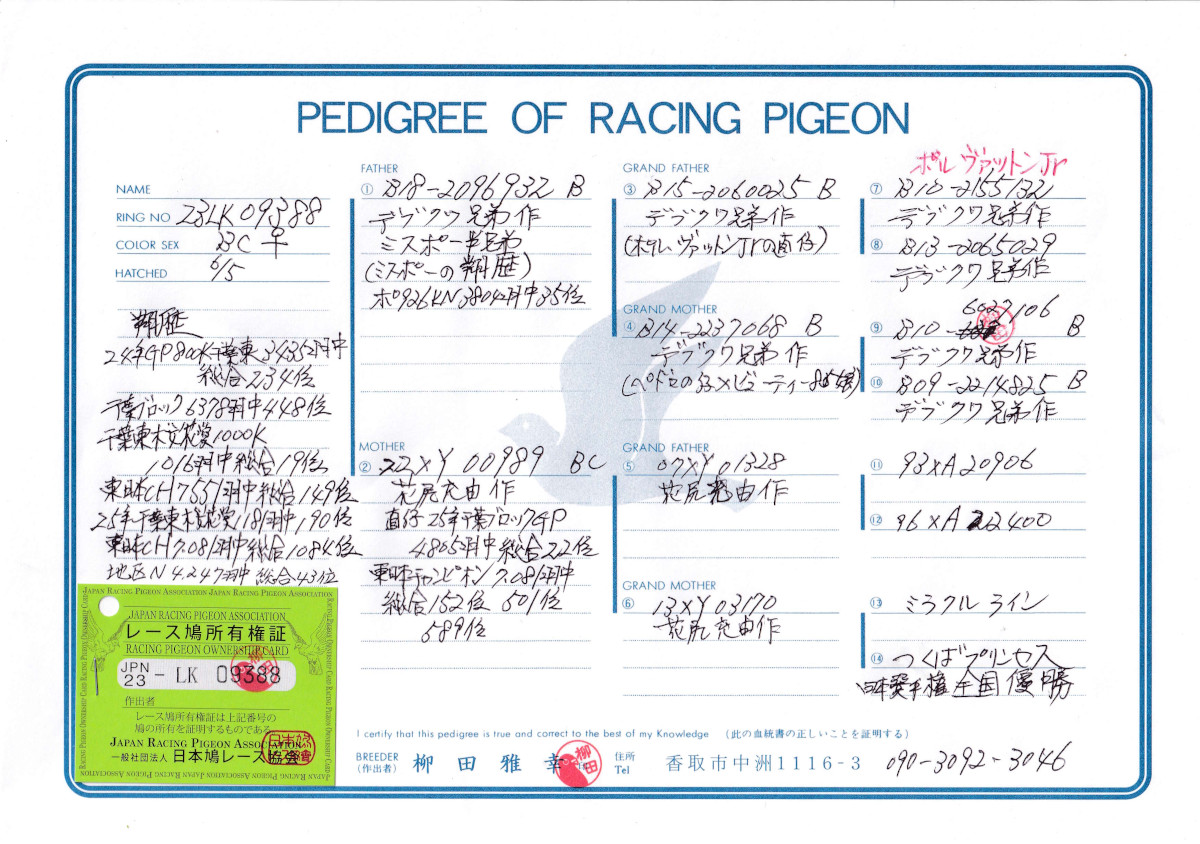 PEDIGREE OF RACING PIGEON
NAME
RING NO 23LK09388
COLOR SEX BC ♀
HATCHED 6/5
翔歴
24年GP800K千葉東3435羽中
総合234位
千葉ブロック6378羽中448位
千葉東桜花賞1000K
1016羽中総合19位
東日本CH7551羽中総合149位
25年千葉東桜花賞1181羽中190位
東日本CH7.081羽中総合1084位
地区N 4.247羽中 総合43位
FATHER
① B18-2096932 B
デブクワ兄弟作
ミスポー半兄弟
(ミスポーの翔歴)
ポ926KN3804羽中35位
MOTHER
② 22XY 00989 BC
花尻充由作
直仔25年千葉ブロックGP
4805羽中総合22位
東日本チャンピオン7.081羽中
総合152位 501位
589位
GRAND FATHER
③ B15-2060025 B
デブクワ兄弟作
(ポルヴァットンJrの直仔)
GRAND MOTHER
④ B14-2237068 B
デブクワ兄弟作
GRAND FATHER
⑤ 07XY01328
花尻充由作
GRAND MOTHER
⑥ 13XY03170
花尻充由作
ポルヴァットンJr
⑦ B10-2155132
デブクワ兄弟作
⑧ B13-2065029
デブクワ兄弟作
6027106
⑨ B10- B
デブクワ兄弟作
⑩ B09-2214825 B
デブクワ兄弟作
⑪ 93XA20906
⑫ 96XA22400
⑬ ミラクルライン
⑭ つくばプリンセス
日本選手権全国優勝
JAPAN RACING PIGEON ASSOCIATION JAPAN RACING PIGEON ASSOCIATION
JAPAN RACING PIGEON ASSOCIATION
レース鳩所有権証
RACING PIGEON OWNERSHIP CARD
JPN
23 - LK 09388
柳田
作出者
レース鳩所有権証は上記番号の
鳩の所有を証明するものである
JAPAN RACING PIGEON ASSOCIATION
一般社団法人 日本鳩レース協会
I certify that this pedigree is true and correct to the best of my Knowledge (此の血統書の正しいことを証明する)
BREEDER
(作出者) 柳田雅幸 柳田
住所
Tel 香取市中洲1116-3 090-3092-3046